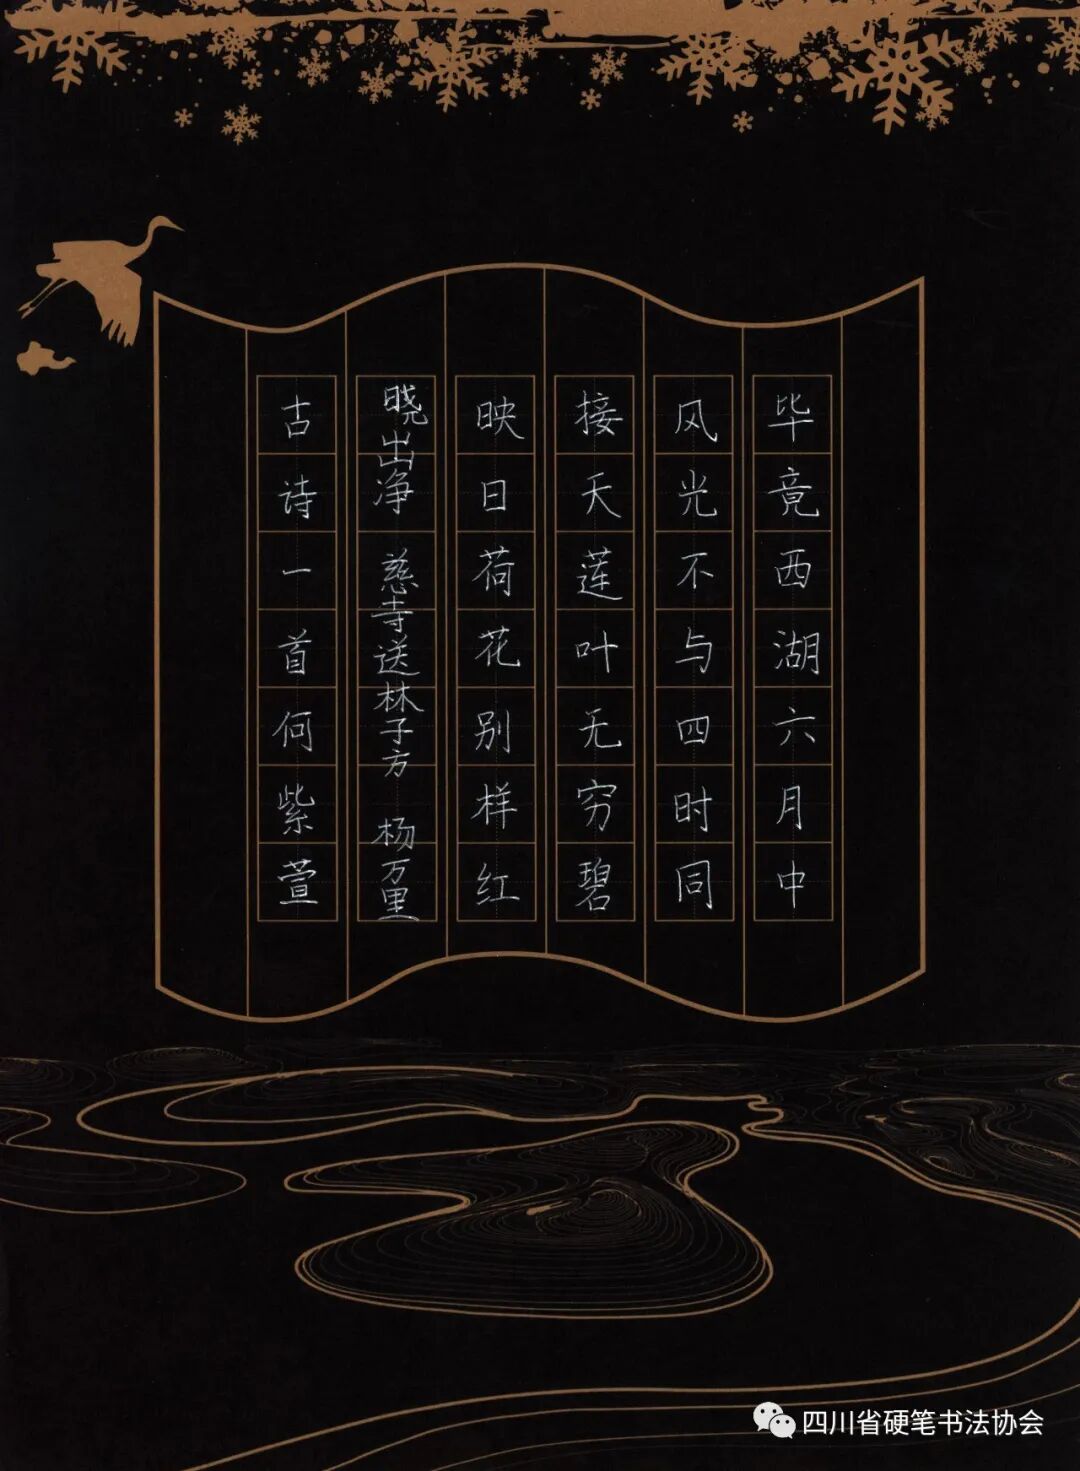 毕竟西湖六月中
风光不与四时同
接天莲叶无穷碧
映日荷花别样红
晓出净 慈寺送林子方 杨万里
古诗一首何紫萱
四川省硬笔书法协会